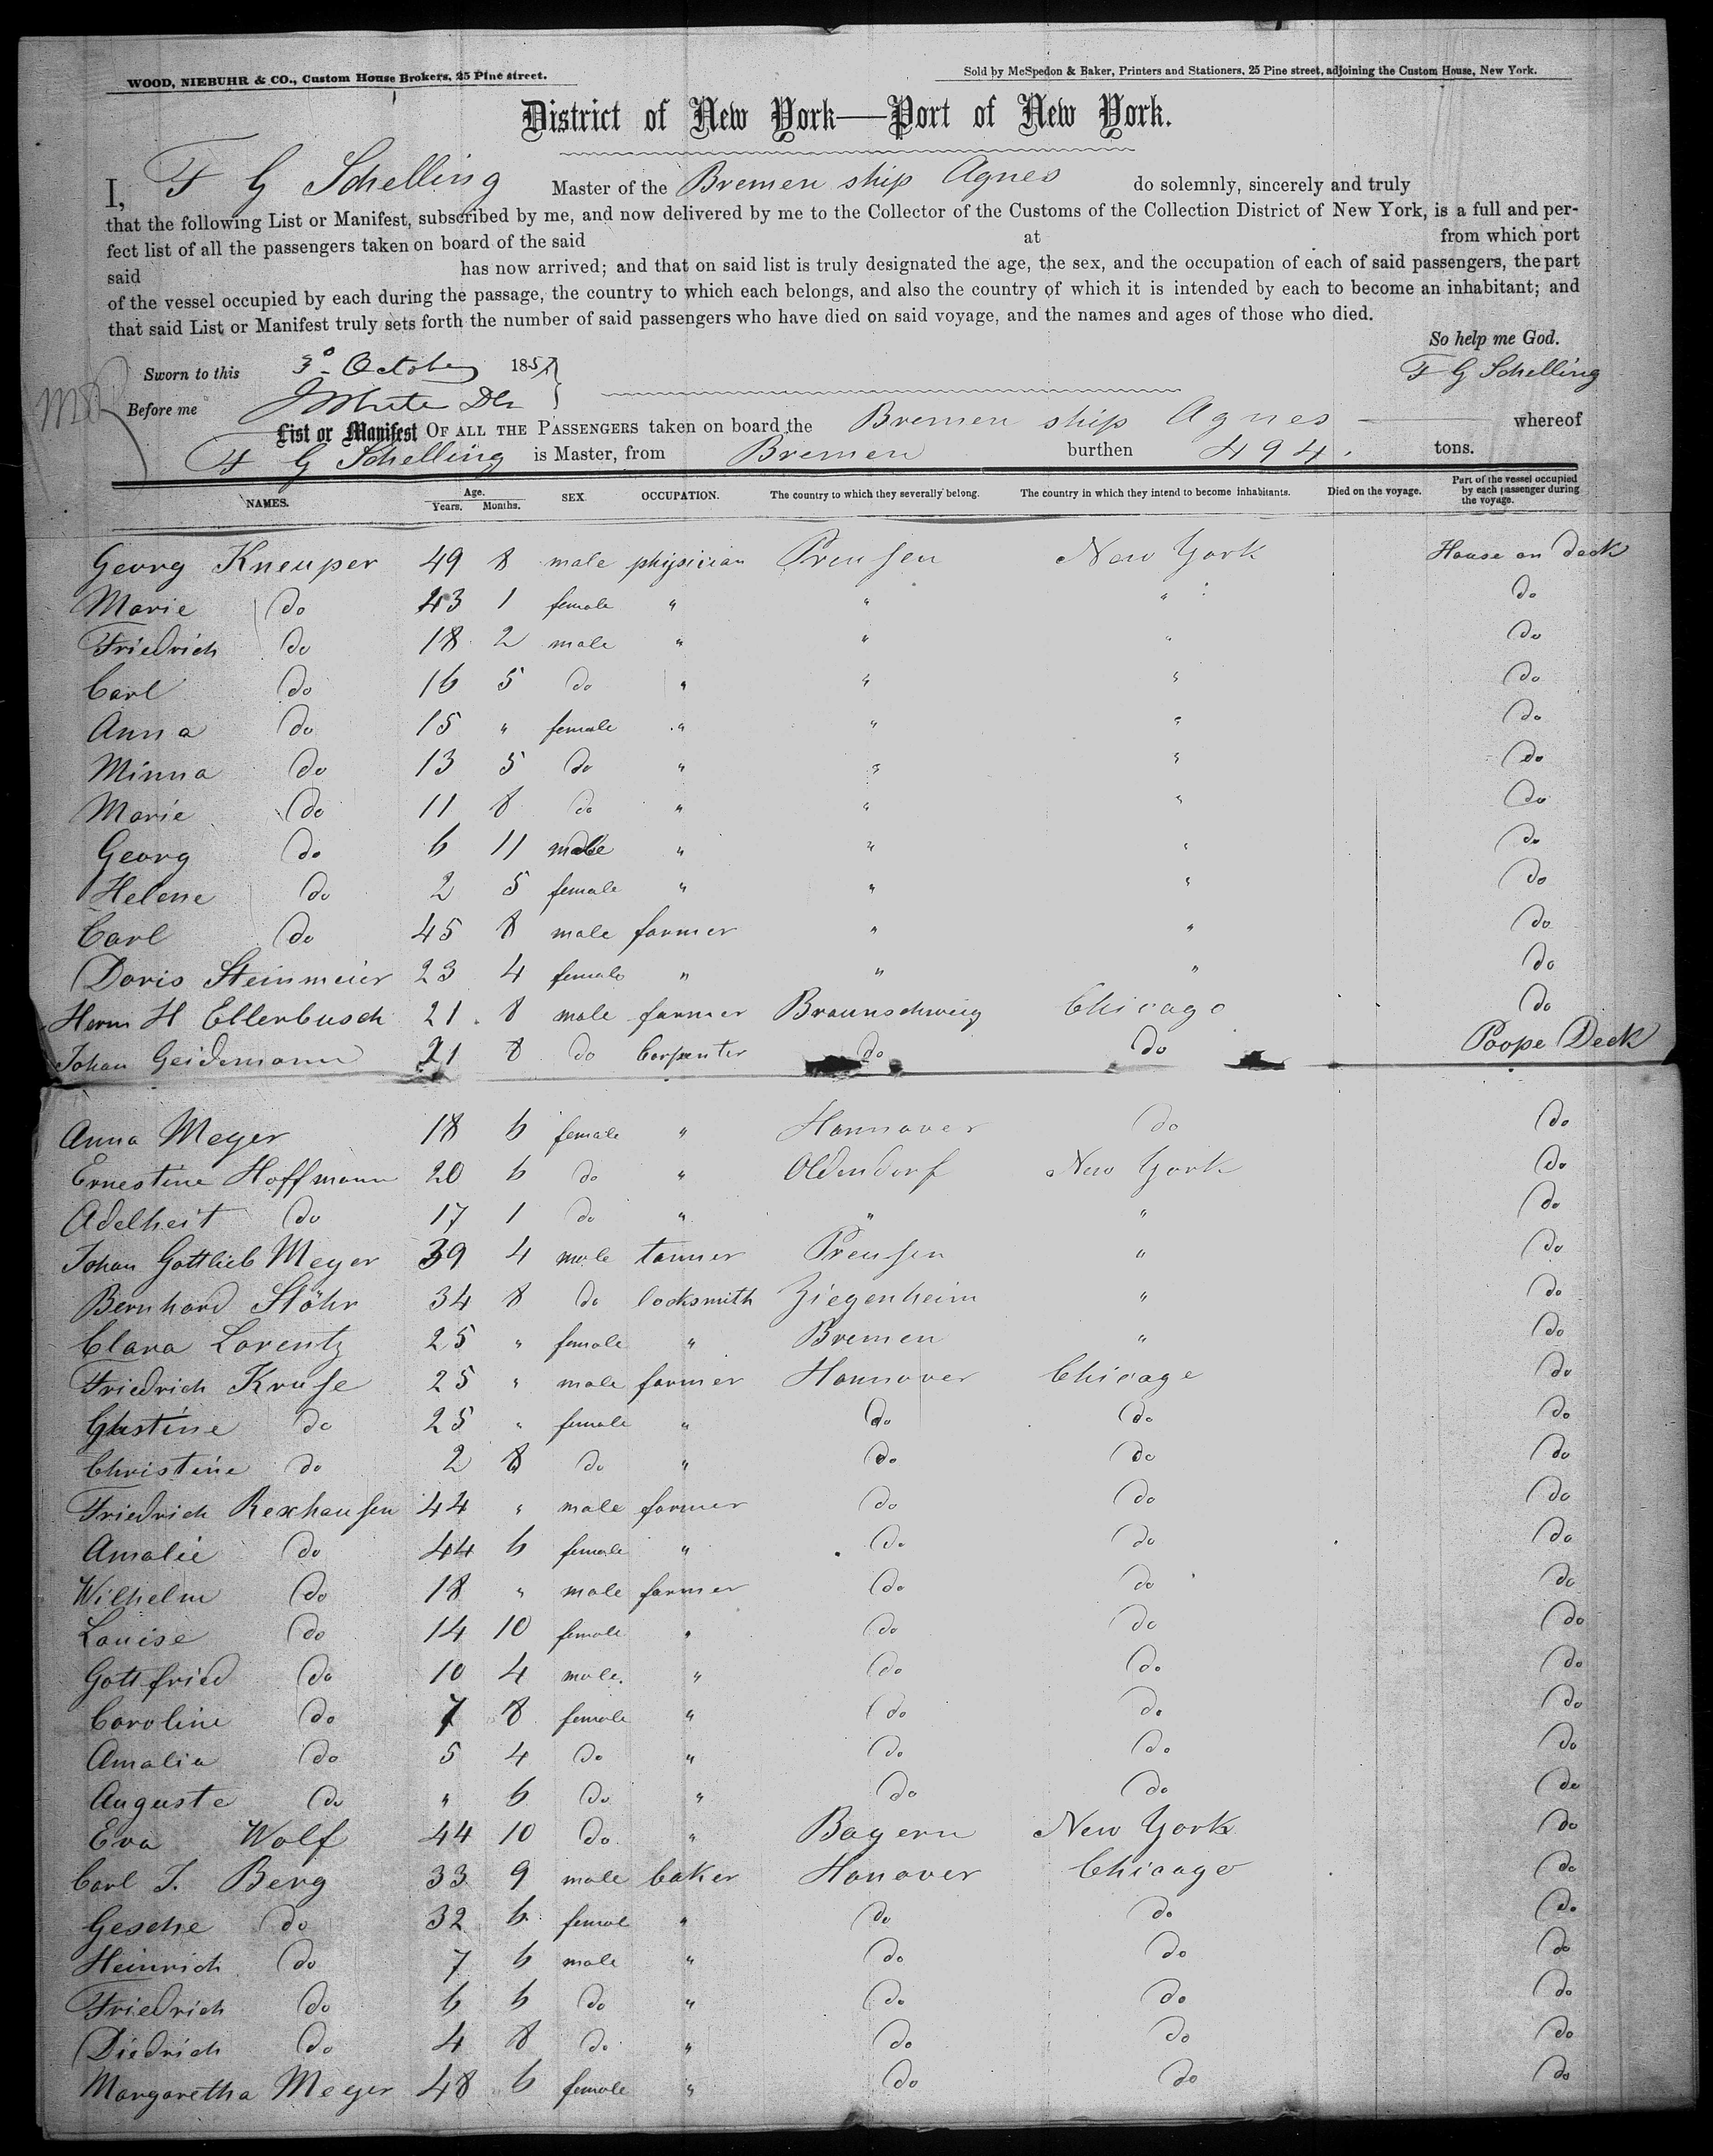 WOOD, NIEBUHR & CO., Custom House Brokers, 25 Pine street.
Sold by McSpedon & Baker, Printers and Stationers, 25 Pine street, adjoining the Custom House, New York.
District of New York—Port of New York.
I, F G Schelling Master of the Bremen ship Agnes do solemnly, sincerely and truly
that the following List or Manifest, subscribed by me, and now delivered by me to the Collector of the Customs of the Collection District of New York, is a full and per-
fect list of all the passengers taken on board of the said at from which port
said has now arrived; and that on said list is truly designated the age, the sex, and the occupation of each of said passengers, the part
of the vessel occupied by each during the passage, the country to which each belongs, and also the country of which it is intended by each to become an inhabitant; and
that said List or Manifest truly sets forth the number of said passengers who have died on said voyage, and the names and ages of those who died.
So help me God.
Sworn to this 3d October 1857 F G Schelling
Before me J White
List or Manifest OF ALL THE PASSENGERS taken on board the Bremen ship Agnes whereof
F G Schelling is Master, from Bremen burthen 494. tons.
NAMES. Age. Years. Months. SEX. OCCUPATION. The country to which they severally belong. The country in which they intend to become inhabitants. Died on the voyage. Part of the vessel occupied by each passenger during the voyage.
Georg Kneuper 49 8 male physician Preusen New York House on deck
Marie do 43 1 female " " " do
Friedrich do 18 2 male " " " do
Carl do 16 5 do " " " do
Anna do 15 " female " " " do
Minna do 13 5 do " " " do
Marie do 11 8 do " " " do
Georg do 6 11 male " " " do
Helene do 2 5 female " " " do
Carl do 45 8 male farmer " " do
Doris Steinmeier 23 4 female " " " do
Herm H Ellerbusch 21 8 male farmer Braunschweig Chicago do
Johan Geidemann 21 8 do Carpenter do do Poope Deck
Anna Meyer 18 6 female " Hannover do do
Ernestine Hoffmann 20 6 do " Oldendorf New York do
Adelheit do 17 1 do " " " do
Johan Gottlieb Meyer 39 4 male tanner Preusen " do
Bernhard Stöhr 34 8 do locksmith Ziegenheim " do
Clara Lorentz 25 " female " Bremen " do
Friedrich Kruse 25 " male farmer Hannover Chicago do
Gustine do 25 " female " do do do
Christine do 2 8 do " do do do
Friedrich Rexhausen 44 " male farmer do do do
Amalie do 44 6 female " do do do
Wilhelm do 18 " male farmer do do do
Louise do 14 10 female " do do do
Gottfried do 10 4 male. " do do do
Caroline do 7 8 female " do do do
Amalia do 5 4 do " do do do
Auguste do " 6 do " do do do
Eva Wolf 44 10 do " Bayern New York do
Carl J. Berg 33 9 male baker Hanover Chicago do
Gesche do 32 6 femal " do do do
Heinrich do 7 6 male " do do do
Friedrich do 6 6 do " do do do
Diedrich do 4 8 do " do do do
Margaretha Meyer 48 6 female " do do do